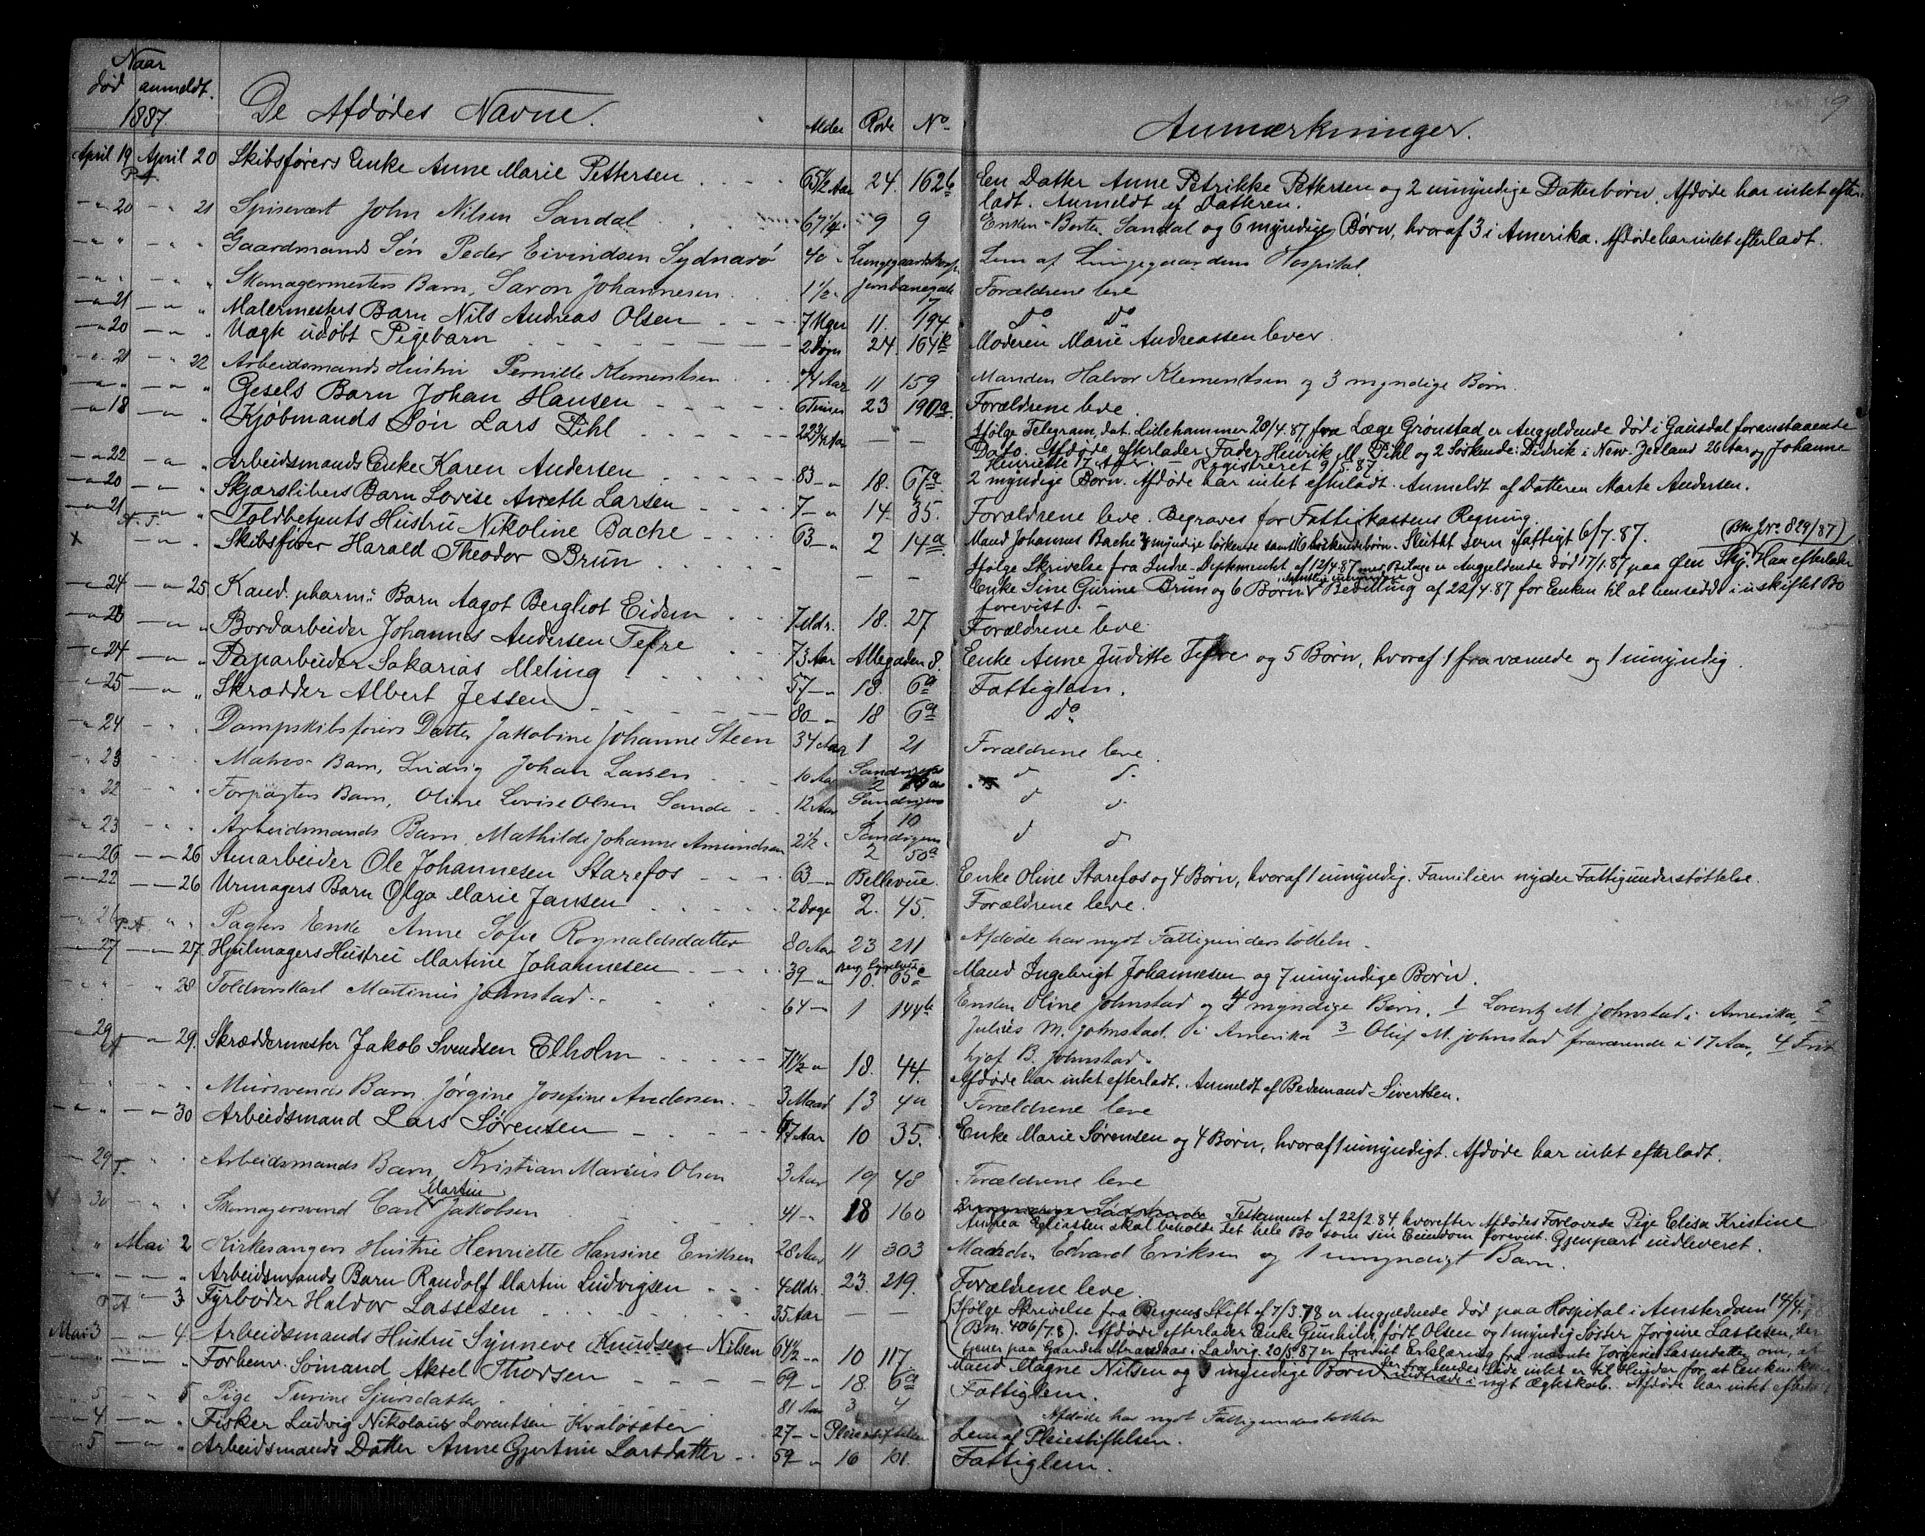 9
Naar
død anmeldt.
1887. De Afdødes Navne. Alder Rode No Anmærkninger.
April 19 April 20 Skibsførers Enke Anne Marie Pettersen 65½ Aar 24. 162b En Datter Anne Petrikke Pettersen og 2 umyndige Datterbørn. Afdøde har intet efter-
ladt. Anmeldt af Datteren.
20 21 Spisevært John Nilsen Sandal 67¼ 9 9 Enken Berte Sandal og 6 myndige Børn, hvoraf 3 i Amerika. Afdøde har intet efterladt.
" " Gaardmands Søn Peder Eivindsen Sydnarø 40 Lungegaardshosp. Lem af Lungegaardens Hospital.
" " Skomagermesters Barn, Saron Johannesen 1½ Jernbanegade 7 Forældrene leve
21 " Malermesters Barn Nils Andreas Olsen 7 Uger 11. 194. Do Do
20 " Vægte udøbt Pigebarn 2 Døgn 24. 164k Moderen Marie Andreassen lever.
21 22 Arbeidsmands Hustru Pernille Klementsen 74 Aar 11 159 Manden Halvor Klementsen og 3 myndige Børn.
" " Gesels Barn Johan Hansen 6 Timer 23 190a Forældrene leve.
18 " Kjøbmands Søn Lars Pihl 22¾ Aar — — Ifølge Telegram, dat. Lillehammer 20/4.87, fra Læge Grønstad er Angjeldende død i Gausdal foranstaaende
Dato. Afdøde efterlader Fader Henrik M. Pihl og 2 Søskende: Didrik i New. Zeeland 26 Aar og Johanne
Henriette 17 Aar. — Registreret 9/5.87.
22 " Arbeidsmands Enke Karen Andersen 83 18. 67a 2 myndige Børn. Afdøde har intet efterladt. Anmeldt af Datteren Marte Andersen.
20 " Skjærslibers Barn Lovise Anethe Larsen 7 14. 35. Forældrene leve. Begraves for Fattigkassens Regning.
21 " Toldbetjents Hustru Nikoline Bache 63 2 14a Mand Johannes Bache 3 myndige Særkende samt Skiftet som fattigt 6/7.87. (Bm. No 829/87)
x " Skibsfører Harald Theodor Brun — — Ifølge Skrivelse fra Indre-Deptmentet af 12/4.87 med Bilage er Angjeldende død 17/1.87 paa Øen Sky. Han efterlader
Enke Sine Gurine Brun og 6 Børn, samtlige umyndige Bevilling af 22/4.87 for Enken til at hensidde i uskiftet Bo
forevist. —
24 25 Kand. pharm.s Barn Aagot Bergliot Eidem 7 Mdr. 18. 27 Forældrene leve.
23 " Bordarbeider Johannes Andersen Tefre 73 Aar Allegaden 8. Enke Anne Juditte Tefre og 5 Børn, hvoraf 1 fraværende og 1 umyndig.
24 " Paparbeider Sakarias Meling 57 18. 6a Fattiglem.
25 " Skrædder Albert Jessen 80 18 6a Do
24 " Dampskibsførers Datter Jakobine Johanne Steen 34 Aar 1 21 Forældrene leve.
23 " Matros Barn, Ludvig Johan Larsen 10 Aar Sandvigen 2 d d
22 " Forpagters Barn, Oline Lovise Olsen Sande 12 Aar Sandvigen 1 10 d d
23 " Arbeidsmands Barn, Mathilde Johanne Amundsen 2½ Sandvigen 2 50a d d
26 26 Stenarbeider Ole Johannesen Starefos 63 Bellevue. Enke Oline Starefos og 4 Børn, hvoraf 1 umyndig. Familien nyder Fattigunderstøttelse.
22 26 Urmagers Barn Olga Marie Jansen 2 Dage 2. 45. Forældrene leve.
26 " Pagters Enke Anne Sofie Rognaldsdatter 80 Aar 23 211 Afdøde har nydt Fattigunderstøttelse.
27 27. Hjulmagers Hustru Martine Johannesen 39 10. 65a Mand Ingebrigt Johannesen og 7 umyndige Børn.
" 28 Toldvorskarl Martinus Johnstad 64 1 144b Enken Oline Johnstad og 4 myndige Børn. 1 Lorentz M. Johnstad i Amerika, 2
Julius M. Johnstad i Amerika 3 Oluf M. Johnstad fraværende i 17 Aar, 4 Frit
hjof B. Johnstad.
29 29. Skræddermester Jakob Svendsen Elholm 71½ 18. 44. Afdøde har intet efterladt. Anmeldt af Bedemand Sivertsen.
" " Mursvends Barn Jørgine Josefine Andersen 3 Maad 13 4a Forældrene leve
" 30 Arbeidsmand Lars Sørensen 67 Aar 10 35. Enke Marie Sørensen og 4 Børn, hvoraf 1 umyndigt. Afdøde har intet efterladt.
29 " Arbeidsmands Barn, Kristian Marius Olsen 3 Aar 19 48 Forældrene leve
v 30 " Skomagersvend Carl Martin Jakobsen 41 18 160 Testament af 22/2.84, hvorefter Afdødes Forlovede Pige Elisa Kristine
Andrea Eliasten skal beholde det hele Bo som sin Eiendom forevist. Gjenpart indleveret.
" Mai 2 Kirkesangers Hustru Henriette Hansine Eriksen 28 Aar 11 303 Manden Edvard Eriksen og 1 umyndigt Barn.
" " Arbeidsmands Barn Randolf Martin Ludvigsen 4 Mdr. 23. 219. Forældrene leve.
" 3 Fyrbøder Haldor Lassesen 35 Aar — — Ifølge Skrivelse fra Bergens Skift af 7/3.78 er Angjeldende død paa Hospital i Amsterdam 14/4.
(Bm. 406/78). Afdøde efterlader Enke Gunhild, født Olsen og 1 myndig Søster Jorgine Lassesen, der
tjener paa Gaarden Strandnas i Ladvig. 20/5.87 er forevist Erklæring fra nævnte Jorgine Lassesdatter om, at
der fra hendes Side intet er til Hinder for, at Enken kan
indtræde i nyt Ægteskab. Afdøde har intet efterladt
Mai 3 4 Arbeidsmands Hustru Synneve Knudsen Nilsen 64½ 10 117 Mand Magne Nilsen og 3 myndige Børn
" " Forhenv. Sømand Aksel Thorsen 69 18. 6a Fattiglem.
5 5 Pige Turine Sjursdatter 81 Aar 3 4 Afdøde har nydt Fattigunderstøttelse
4 " Fisker Ludvig Nikolaus Lorentsen Kvaløsæter 27 Pleiestiftelsen Lem af Pleiestiftelsen.
5 " Arbeidsmands Datter Anne Gjertine Larsdatter 59 16 101. Fattiglem.